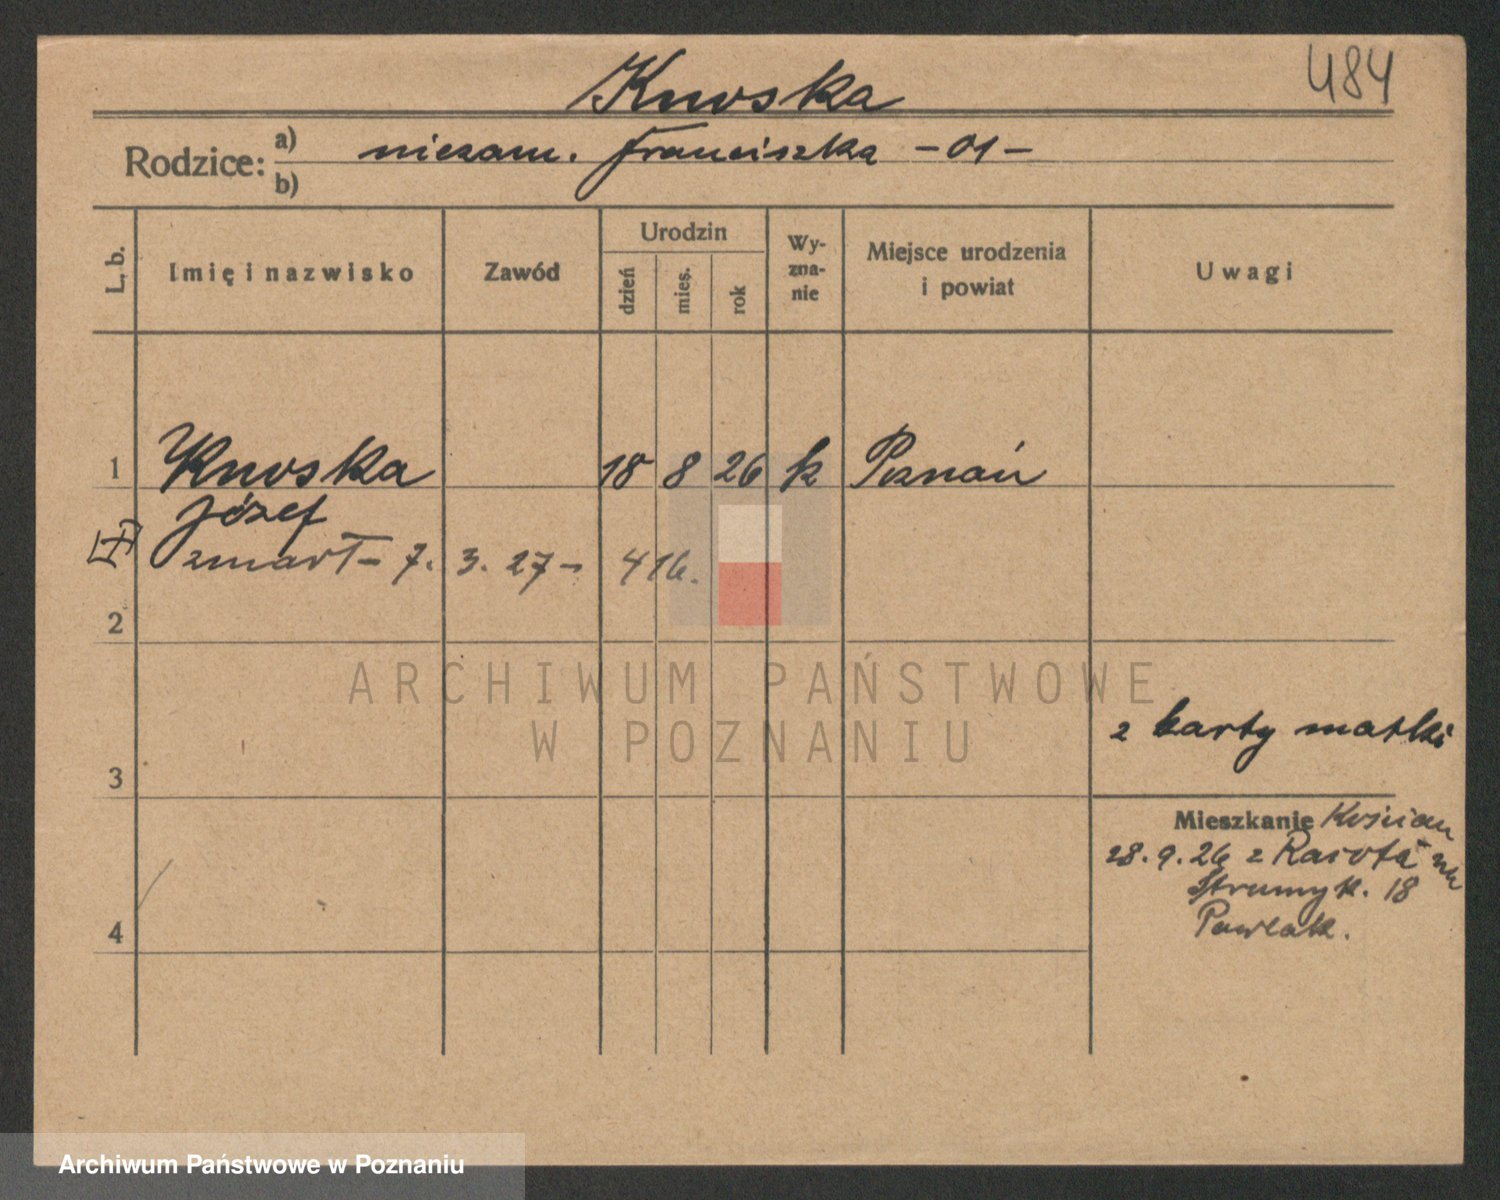 484
Knoska
Rodzice: a) niezam. Franciszka -01-
b)
L. b.
Imię i nazwisko
Zawód
Urodzin
dzień
mies.
rok
Wy-
zna-
nie
Miejsce urodzenia
i powiat
Uwagi
1 Knoska 18 8 26 k Poznań
Józef
zmarł - 7. 3. 27 - 416.
2
ARCHIWUM PAŃSTWOWE
W POZNANIU
z karty matki
3
Mieszkanie Kościan
28.9.26 z na
Strumyk. 18
Pawlak.
4
Archiwum Państwowe w Poznaniu